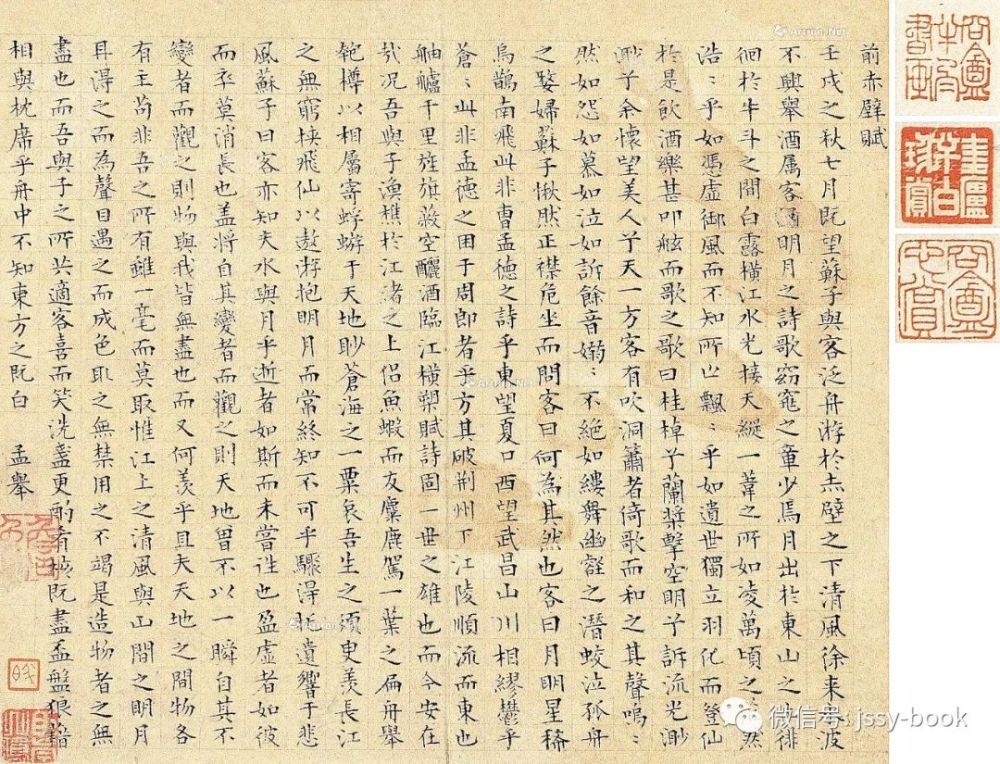 前赤壁賦
壬戌之秋七月既望蘇子與客泛舟游於赤壁之下清風徐来水波
不興舉酒属客誦明月之詩歌窈窕之章少焉月出於東山之上徘
徊於牛斗之間白露横江水光接天縱一葦之所如凌萬頃之茫然
浩〻乎如憑虚御風而不知所止飄〻乎如遺世獨立羽化而登仙
於是飲酒樂甚叩舷而歌之歌曰桂棹兮蘭槳擊空明兮訴流光渺
渺兮余懷望美人兮天一方客有吹洞簫者倚歌而和之其聲嗚〻
然如怨如慕如泣如訴餘音嫋〻不絶如縷舞幽壑之潜蛟泣孤舟
之嫠婦蘇子愀然正襟危坐而問客曰何為其然也客曰月明星稀
烏鵲南飛此非曹孟德之詩乎東望夏口西望武昌山川相繆鬱乎
蒼〻此非孟德之困于周郎者乎方其破荆州下江陵順流而東也
舳艫千里旌旗蔽空釃酒臨江橫槊賦詩固一世之雄也而今安在
哉况吾與子漁樵於江渚之上侣魚蝦而友麋鹿駕一葉之扁舟舉
匏樽以相屬寄蜉蝣于天地眇蒼海之一粟哀吾生之須臾羡長江
之無窮挟飛仙以遨游抱明月而常終知不可乎驟得託遺響于悲
風蘇子曰客亦知夫水與月乎逝者如斯而未嘗往也盈虚者如彼
而卒莫消長也盖將自其變者而觀之則天地曾不以一瞬自其不
變者而觀之則物與我皆無盡也而又何羡乎且夫天地之間物各
有主苟非吾之所有雖一毫而莫取惟江上之清風與山間之明月
耳得之而為聲目遇之而成色取之無禁用之不竭是造物者之無
盡也而吾與子之所共適客喜而笑洗盞更酌肴核既盡盃盤狼藉
相與枕席乎舟中不知東方之既白 孟舉
微信号: jssy-book